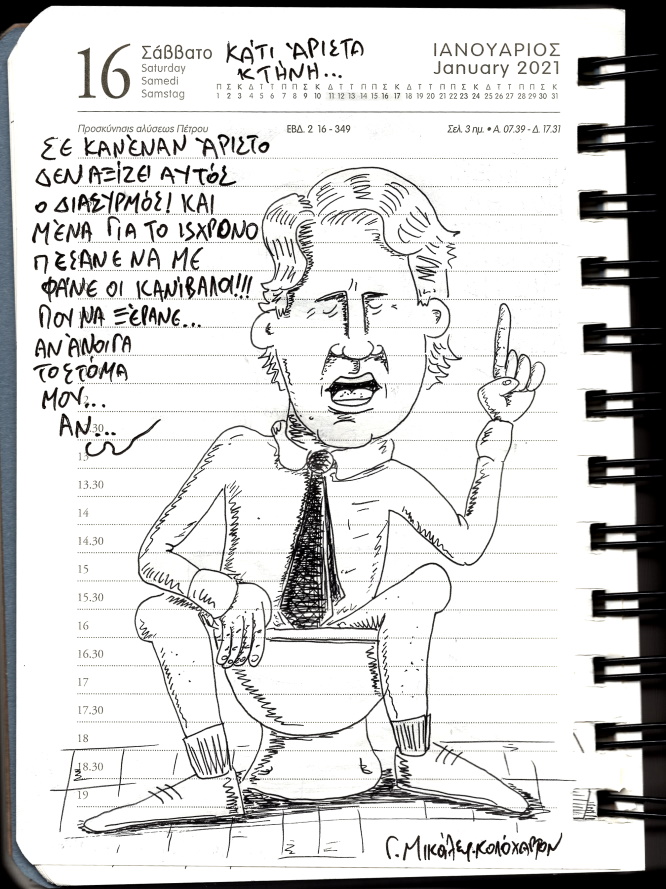 16 Σάββατο ΚΆΤΙ ΆΡΙΣΤΑ ΙΑΝΟΥΑΡΙΟΣ
Saturday ΚΤΉΝΗ... January 2021
Samedi
Samstag
Π Σ Κ Δ Τ Τ Π Π Σ Κ Δ Τ Τ Π Π Σ Κ Δ Τ Τ Π Π Σ Κ Δ Τ Τ Π Π Σ Κ
1 2 3 4 5 6 7 8 9 10 11 12 13 14 15 16 17 18 19 20 21 22 23 24 25 26 27 28 29 30 31
Προσκύνησις αλύσεως Πέτρου ΕΒΔ. 2 16 - 349 Σελ. 3 ημ. • Α. 07.39 - Δ. 17.31
ΣΕ ΚΑΝΈΝΑΝ ΆΡΙΣΤΟ
ΔΕΝ ΑΞΊΖΕΙ ΑΥΤΌΣ
Ο ΔΙΑΣΥΡΜΌΣ! ΚΑΙ
ΜΈΝΑ ΓΙΑ ΤΟ 15ΧΡΟΝΟ
ΠΈΣΑΝΕ ΝΑ ΜΕ
ΦΆΝΕ ΟΙ ΚΑΝΊΒΑΛΟΙ!!!
ΠΟΥ ΝΑ ΞΈΡΑΝΕ...
ΑΝ ΆΝΟΙΓΑ
ΤΟ ΣΤΌΜΑ
ΜΟΥ...
ΑΝ...
.30
13
13.30
14
14.30
15
15.30
16
16.30
17
17.30
18
18.30
19
Γ. Μικάλεφ.κωλόχαρτον